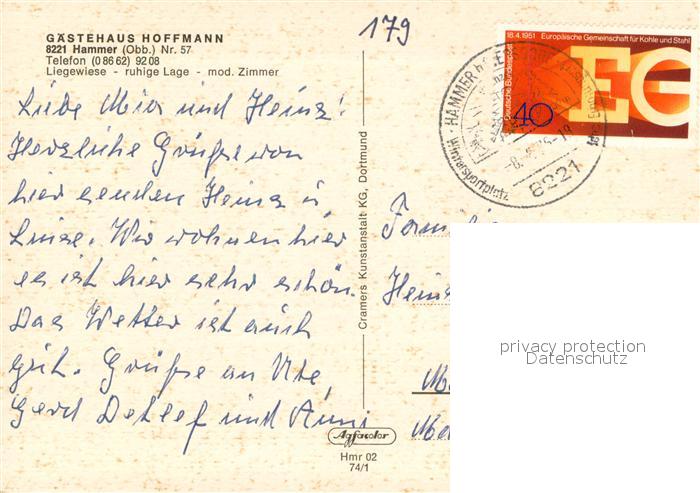 GÄSTEHAUS HOFFMANN
8221 Hammer (Obb.) Nr. 57
Telefon (0 86 62) 92 08
Liegewiese - ruhige Lage - mod. Zimmer
179
18.4.1951 Europäische Gemeinschaft für Kohle und Stahl
Deutsche Bundespost
40
EG
HAMMER
Wintersportplatz
8221
Liebe Mia und Heinz!
Herzliche Grüße von
hier senden Heinz u
Luise. Wir wohnen hier
es ist hier sehr schön.
Das Wetter ist auch
gut. Grüße an Ute,
Gerd Detlef und Anni
Cramers Kunstanstalt KG, Dortmund
Familie
Hein
privacy protection
Datenschutz
Agfacolor
Hmr 02
74/1